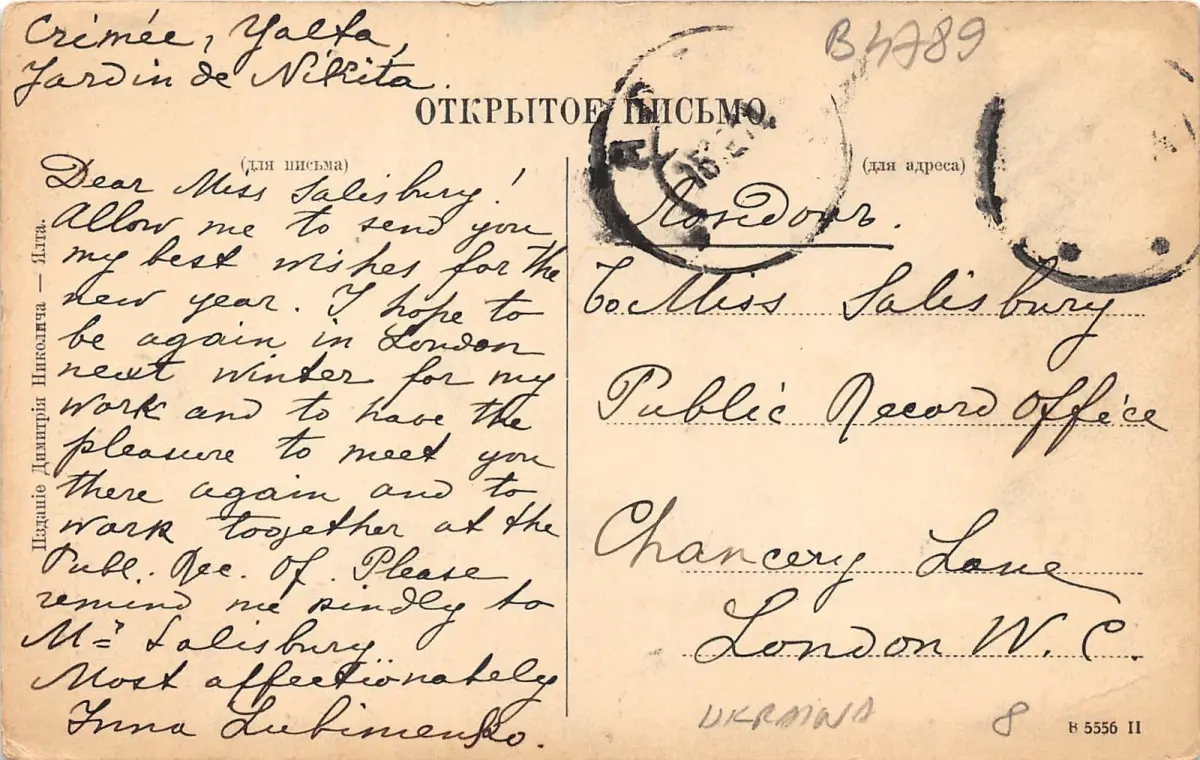 Crimée, Yalta,
Jardin de Nikita.
B4789
ОТКРЫТОЕ ПИСЬМО
(для письма)
(для адреса)
Dear Miss Salisbury!
Allow me to send you
my best wishes for the
new year. I hope to
be again in London
next winter for my
work and to have the
pleasure to meet you
there again and to
work together at the
Publ. Rec. Of. Please
remind me kindly to
Mrs Salisbury.
Most affectionately
Inna Lubimenko.
Лондонъ.
To Miss Salisbury
Public Record Office
Chancery Lane
London W. C.
UKRAINA
8
B 5556 II
Изданіе Димитрія Николича — Ялта.